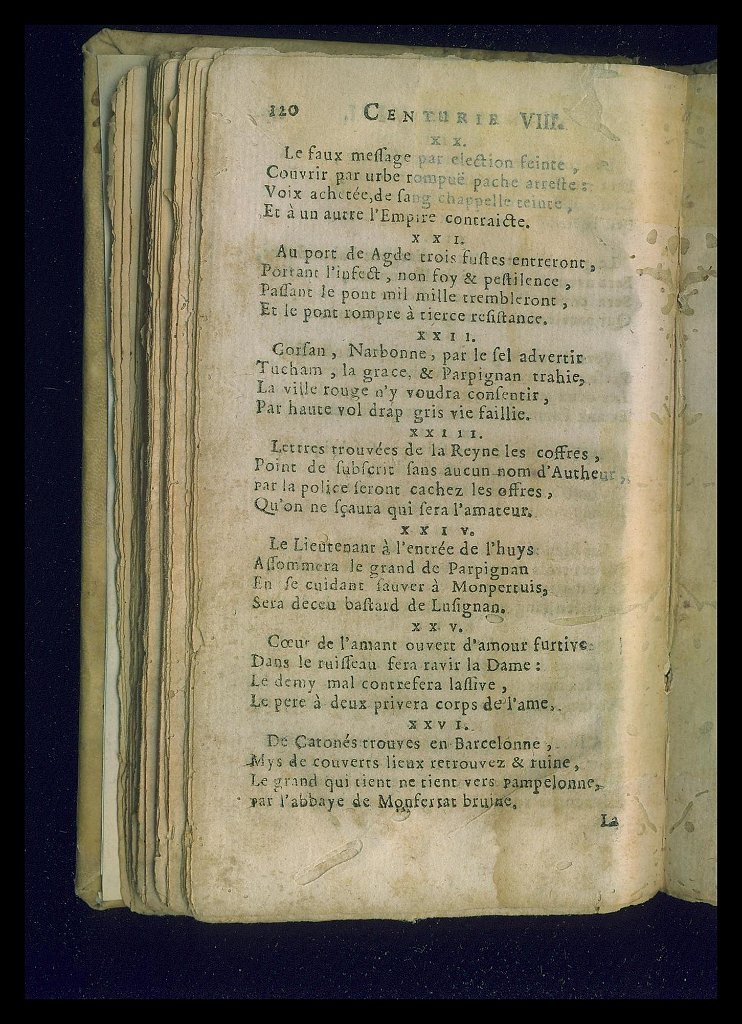 120 CENTURIE VIII.
XX.
Le faux meſſage par election feinte,
Couvrir par urbe rompuë pache arreſte:
Voix achetée, de ſang chappelle teinte,
Et à un autre l'Empire contraicte.
XXI.
Au port de Agde trois fuſtes entreront,
Portant l'infect, non foy & peſtilence,
Paſſant le pont mil mille trembleront,
Et le pont rompre à tierce reſiſtance.
XXII.
Gorſan, Narbonne, par le ſel advertir
Tucham, la grace, & Parpignan trahie,
La ville rouge n'y voudra conſentir,
Par haute vol drap gris vie faillie.
XXIII.
Lettres trouvées de la Reyne les coffres,
Point de ſubſcrit ſans aucun nom d'Autheur,
Par la police ſeront cachez les offres,
Qu'on ne ſçaura qui ſera l'amateur.
XXIV.
Le Lieutenant à l'entrée de l'huys
Aſſommera le grand de Parpignan
En ſe cuidant ſauver à Monpertuis,
Sera deceu baſtard de Luſignan.
XXV.
Cœur de l'amant ouvert d'amour furtive
Dans le ruiſſeau fera ravir la Dame:
Le demy mal contrefera laſſive,
Le pere à deux privera corps de l'ame,
XXVI.
De Catonés trouves en Barcelonne,
Mys de couverts lieux retrouvez & ruine,
Le grand qui tient ne tient vers pampelonne,
par l'abbaye de Monferrat bruine.
La